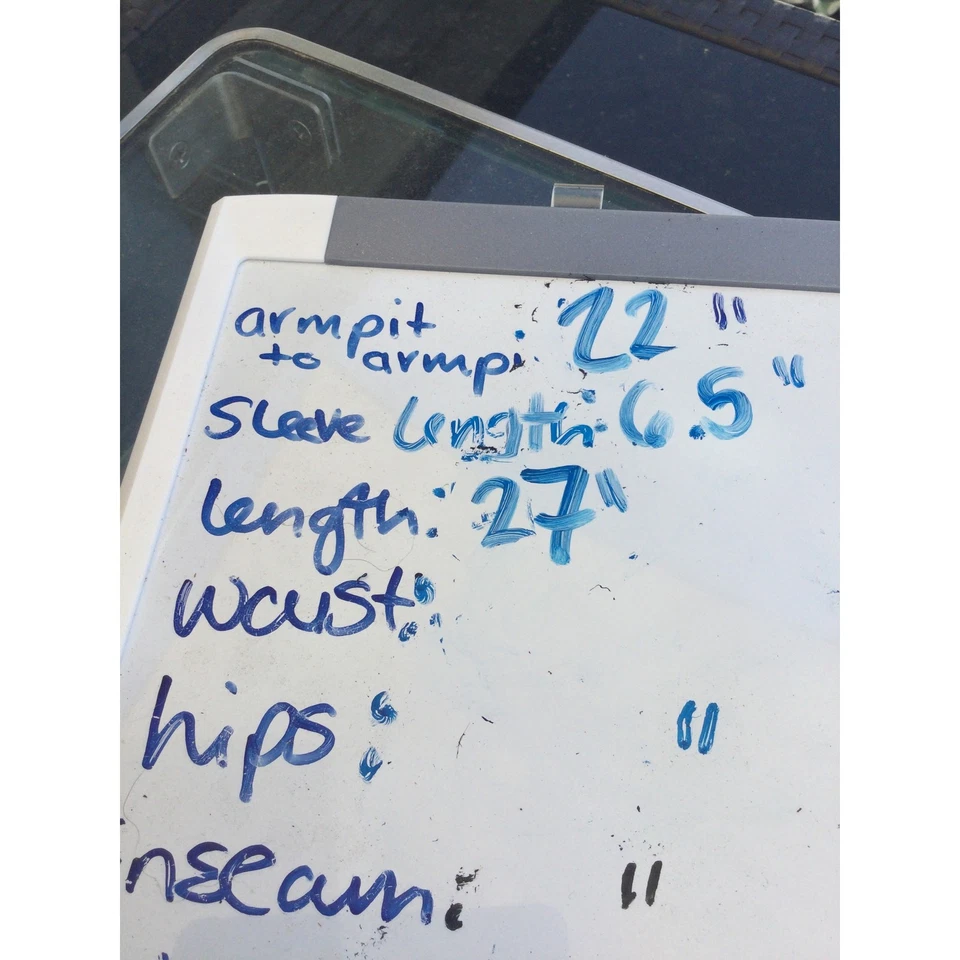 armpit
to armpi : 22 "
Sleeve length: 6.5 "
length: 27"
waist:
hips: "
nseam: "